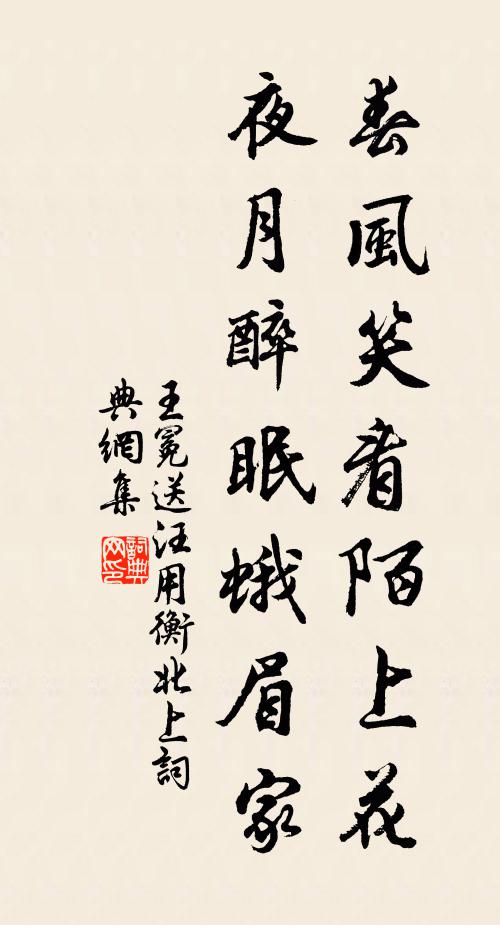 春風笑看陌上花
夜月醉眠蛾眉家
王冕送汪用衡北上詞
典網集
詞典
网印